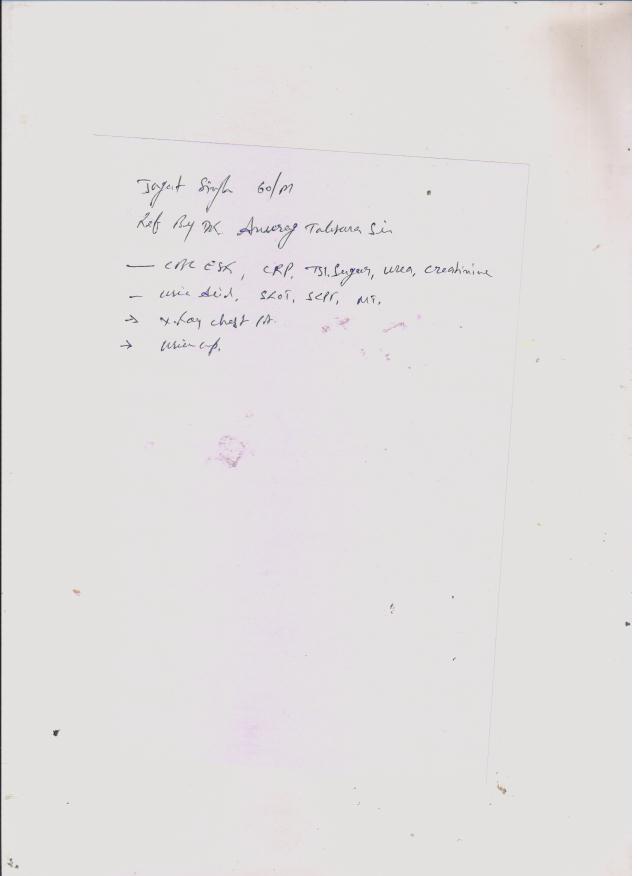 Jagat Singh 60/M
Ref By DR. Anurag Sir
— CBC ESR, CRP, Sugar, Urea, Creatinine
– Uric Acid, SGOT, SGPT, MT,
→ X-Ray chest PA
→ Urine